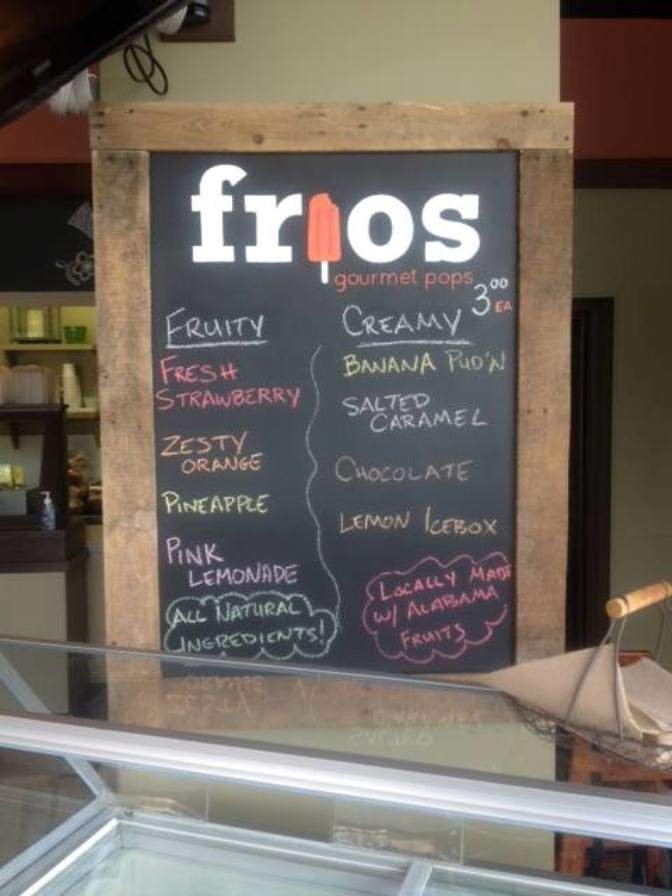 frios
gourmet pops
3.00 EA
FRUITY
FRESH
STRAWBERRY
ZESTY
ORANGE
PINEAPPLE
PINK
LEMONADE
ALL NATURAL
INGREDIENTS!
CREAMY
BANANA PUD'N
SALTED
CARAMEL
CHOCOLATE
LEMON ICEBOX
LOCALLY MADE
W/ ALABAMA
FRUITS